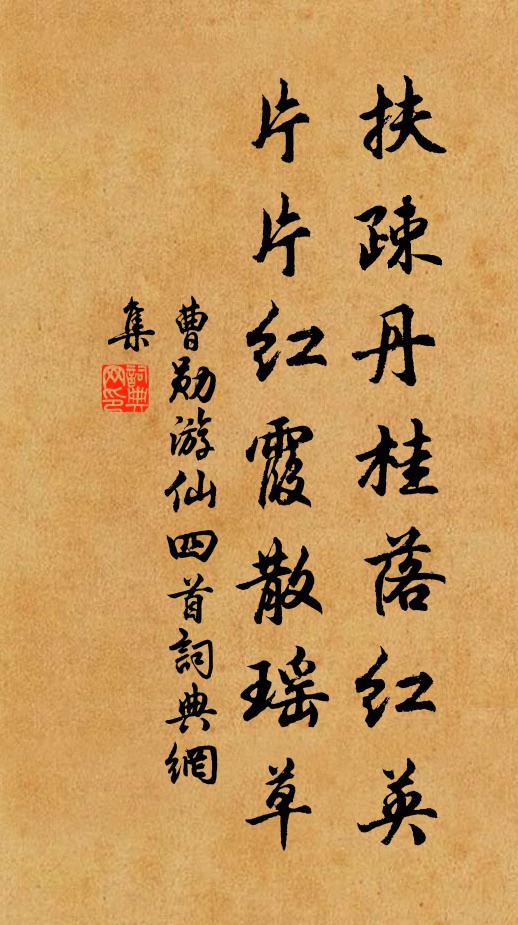 扶疎丹桂落红英
片片红霞散瑶草
曹勋游仙四首詞典網
集
詞典
网印